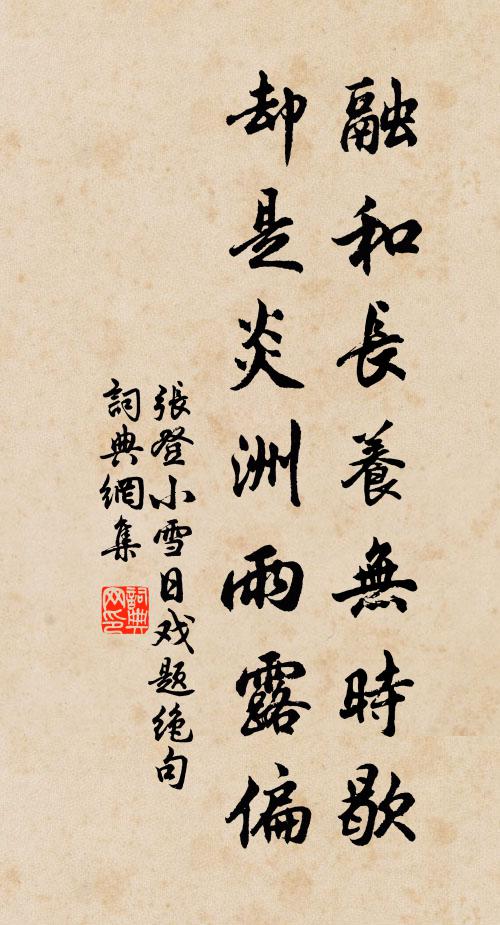 融和長養無時歇
却是炎洲雨露偏
張登小雪日戏题绝句
詞典網集
詞典网印